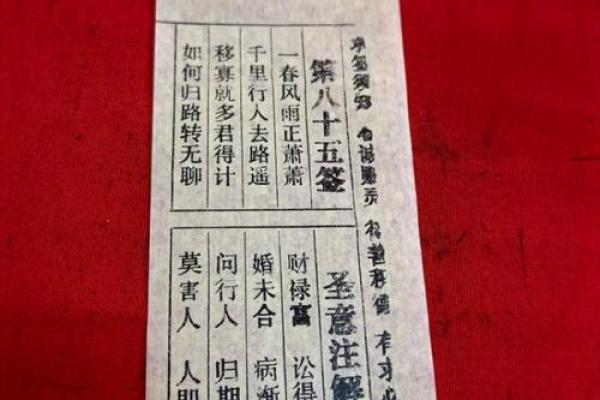 心诚则灵 积善积德 有求必
第八十五签
一春风雨正萧萧
千里行人去路遥
移寡就多君得计
如何归路转无聊
圣意注解
财禄富 讼得
婚未合 病渐
问行人 归期
莫害人 人即